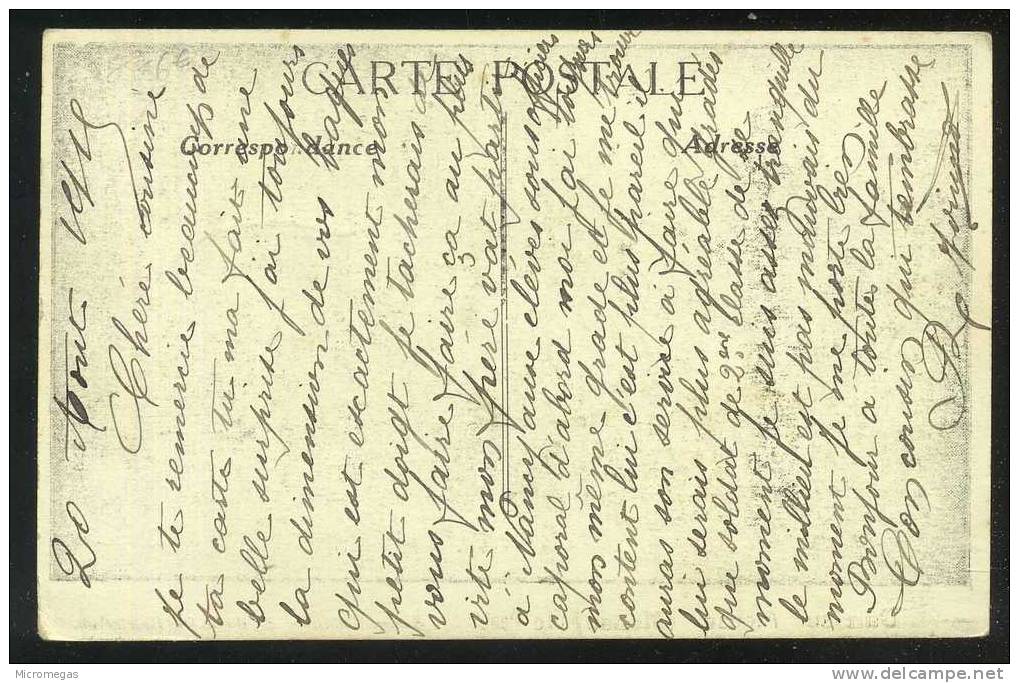 CARTE POSTALE
Correspondance
Adresse
20 Aout 1916
Chéré cousine
je te remercie beaucoup de
ta carte tu ma fait une
belle surprise j'ai toujours
la dimension de vos bagues
qui est exactement mon
petit doigt je tacherais de
vous faire faire ça au plus
vite mon père vat part
á Nancy aux élèves sous officiers
caporal d'abord moi j'ai toujours
mon même grade et je me trouve
content lui c'est plus pareil il
auras son service à faire du
lui serais plus agréable gradés
que soldat de 2em classe de se
moment je suis assez tranquille
le milieu est pas mauvais du
moment je me porte bien
Bonjour a toute la famille
Ton cousin qui t'embrasse
delcampe.net
Micromegas